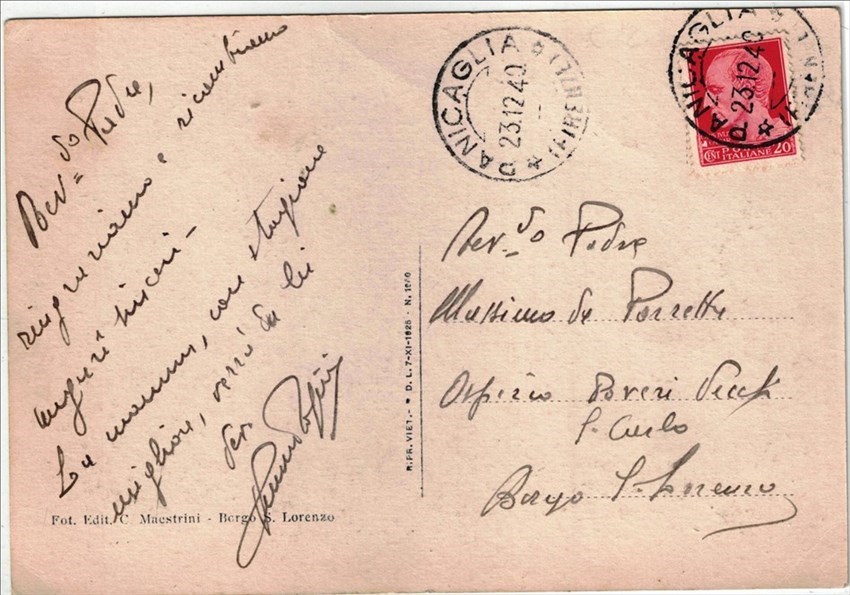 Rev=do Padre,
ringraziamo e ricambiamo
auguri sinceri -
La mamma, con stagione
migliore, verrà da lei
Dev.
Fot. Edit. C. Maestrini - Borgo S. Lorenzo
RIPR. VIET. - D. L. 7-XI-1925 - N.
PANICAGLIA
(FIRENZE)
23.12.40
PANICAGLIA
23.12.40
POSTE
ITALIANE
CENT 20
Rev=do Padre
Massimo da Porretta
Ospizio Poveri Vecchi
S. Carlo
Borgo S. Lorenzo